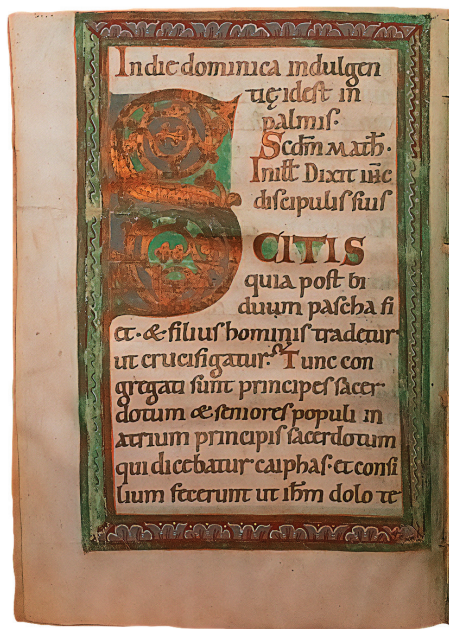 In die dominica indulgen
tię id est in
palmis.
Scdm Math.
In illt Dixit ihc
discipulis suis
SCITIS
quia post bi
duum pascha fi
et. & filius hominis tradetur
ut crucifigatur. Tunc con
gregati sunt principes sacer
dotum & seniores populi in
atrium principis sacerdotum
qui dicebatur caiphas. et consi
lium fecerunt ut ihm dolo te